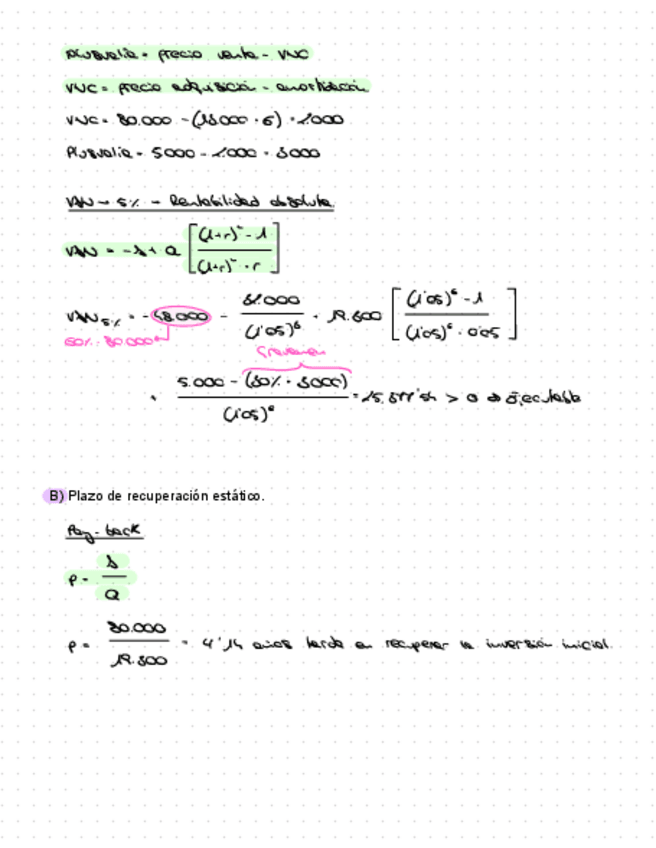 Plusvalía = precio venta - VNC
VNC = precio adquisición - amortización
VNC = 80.000 - (13.000 · 6) = 2000
Plusvalía = 5000 - 2000 = 3000
VAN → 5% → Rentabilidad absoluta.
VAN = -A + Q [ (1+r)ⁿ - 1 / (1+r)ⁿ · r ]
VAN5% = -48.000 - 32.000 / (1'05)⁶ + 19.300 [ (1'05)⁶ - 1 / (1'05)⁶ · 0'05 ]
60% · 80000
Gravamen
+ 5.000 - (30% · 3000) / (1'05)⁶ = > 0 ⇒ Ejecutable
B) Plazo de recuperación estático.
Pay-back
P = A / Q
P = 80.000 / 19.300 = 4'14 años tarda en recuperar la inversión inicial.